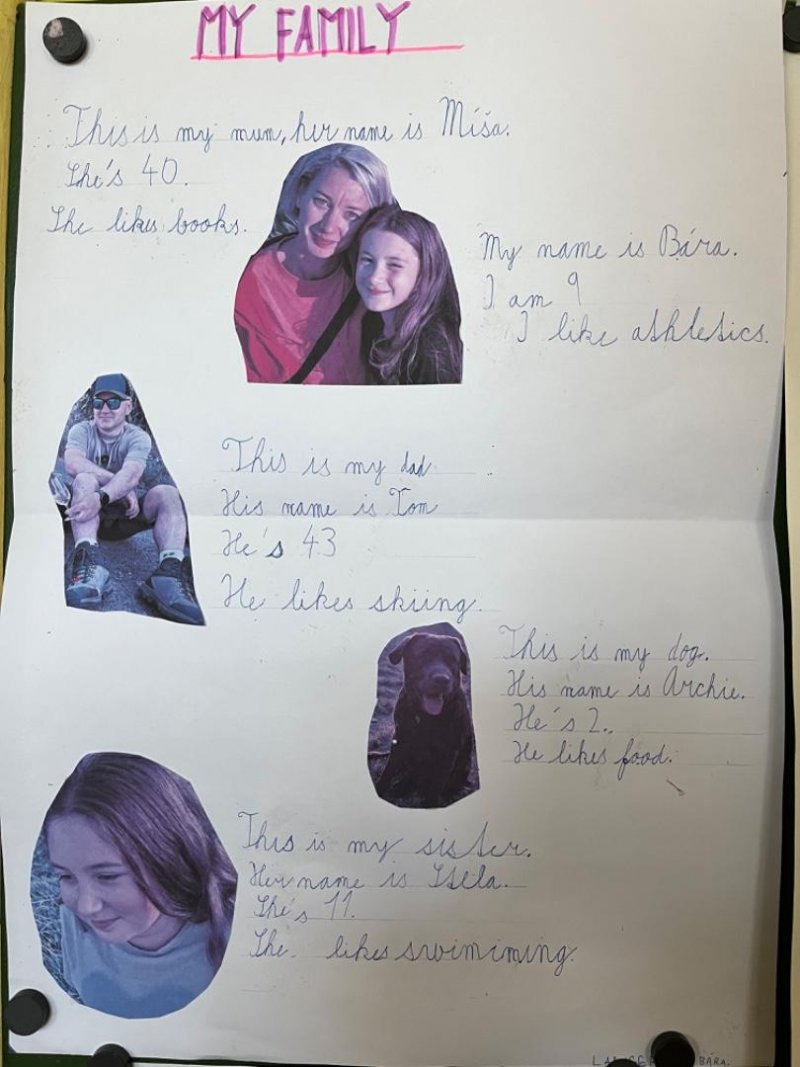 MY FAMILY
This is my mum, her name is Míša.
She's 40.
She likes books.
My name is Bára.
I am 9
I like athletics.
This is my dad
His name is Tom
He's 43
He likes skiing.
This is my dog.
His name is Archie.
He's 2..
He likes food.
This is my sister.
Her name is
She's 11.
She. likes swimiming.
BÁRA.